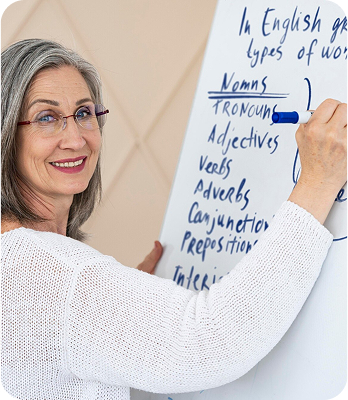 In English gr
types of wor
Nomns
Pronouns
Adjectives
Verbs
Adverbs
Conjunction
Preposition
Interj